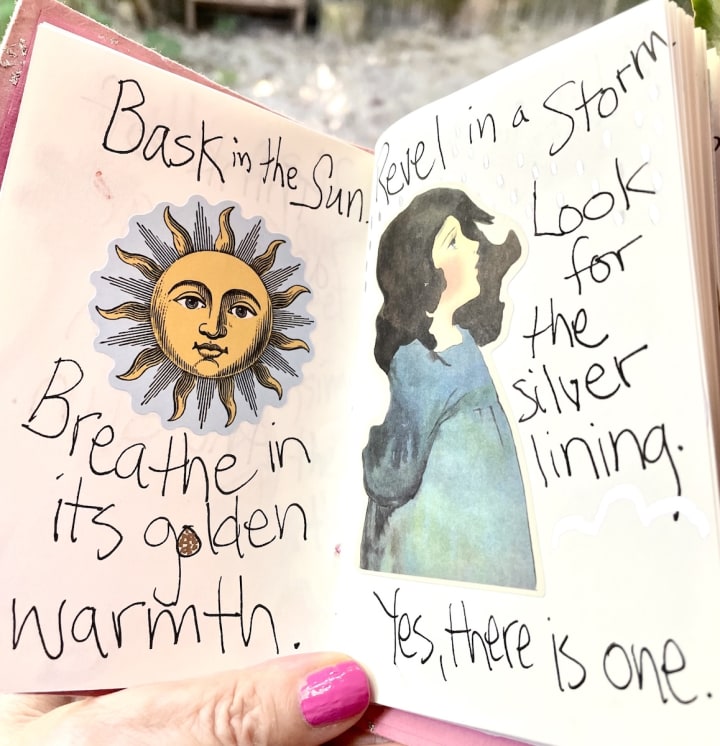 Bask in the Sun.
Breathe in
its golden
warmth.
Revel in a Storm.
Look
for
the
silver
lining.
Yes, there is one.